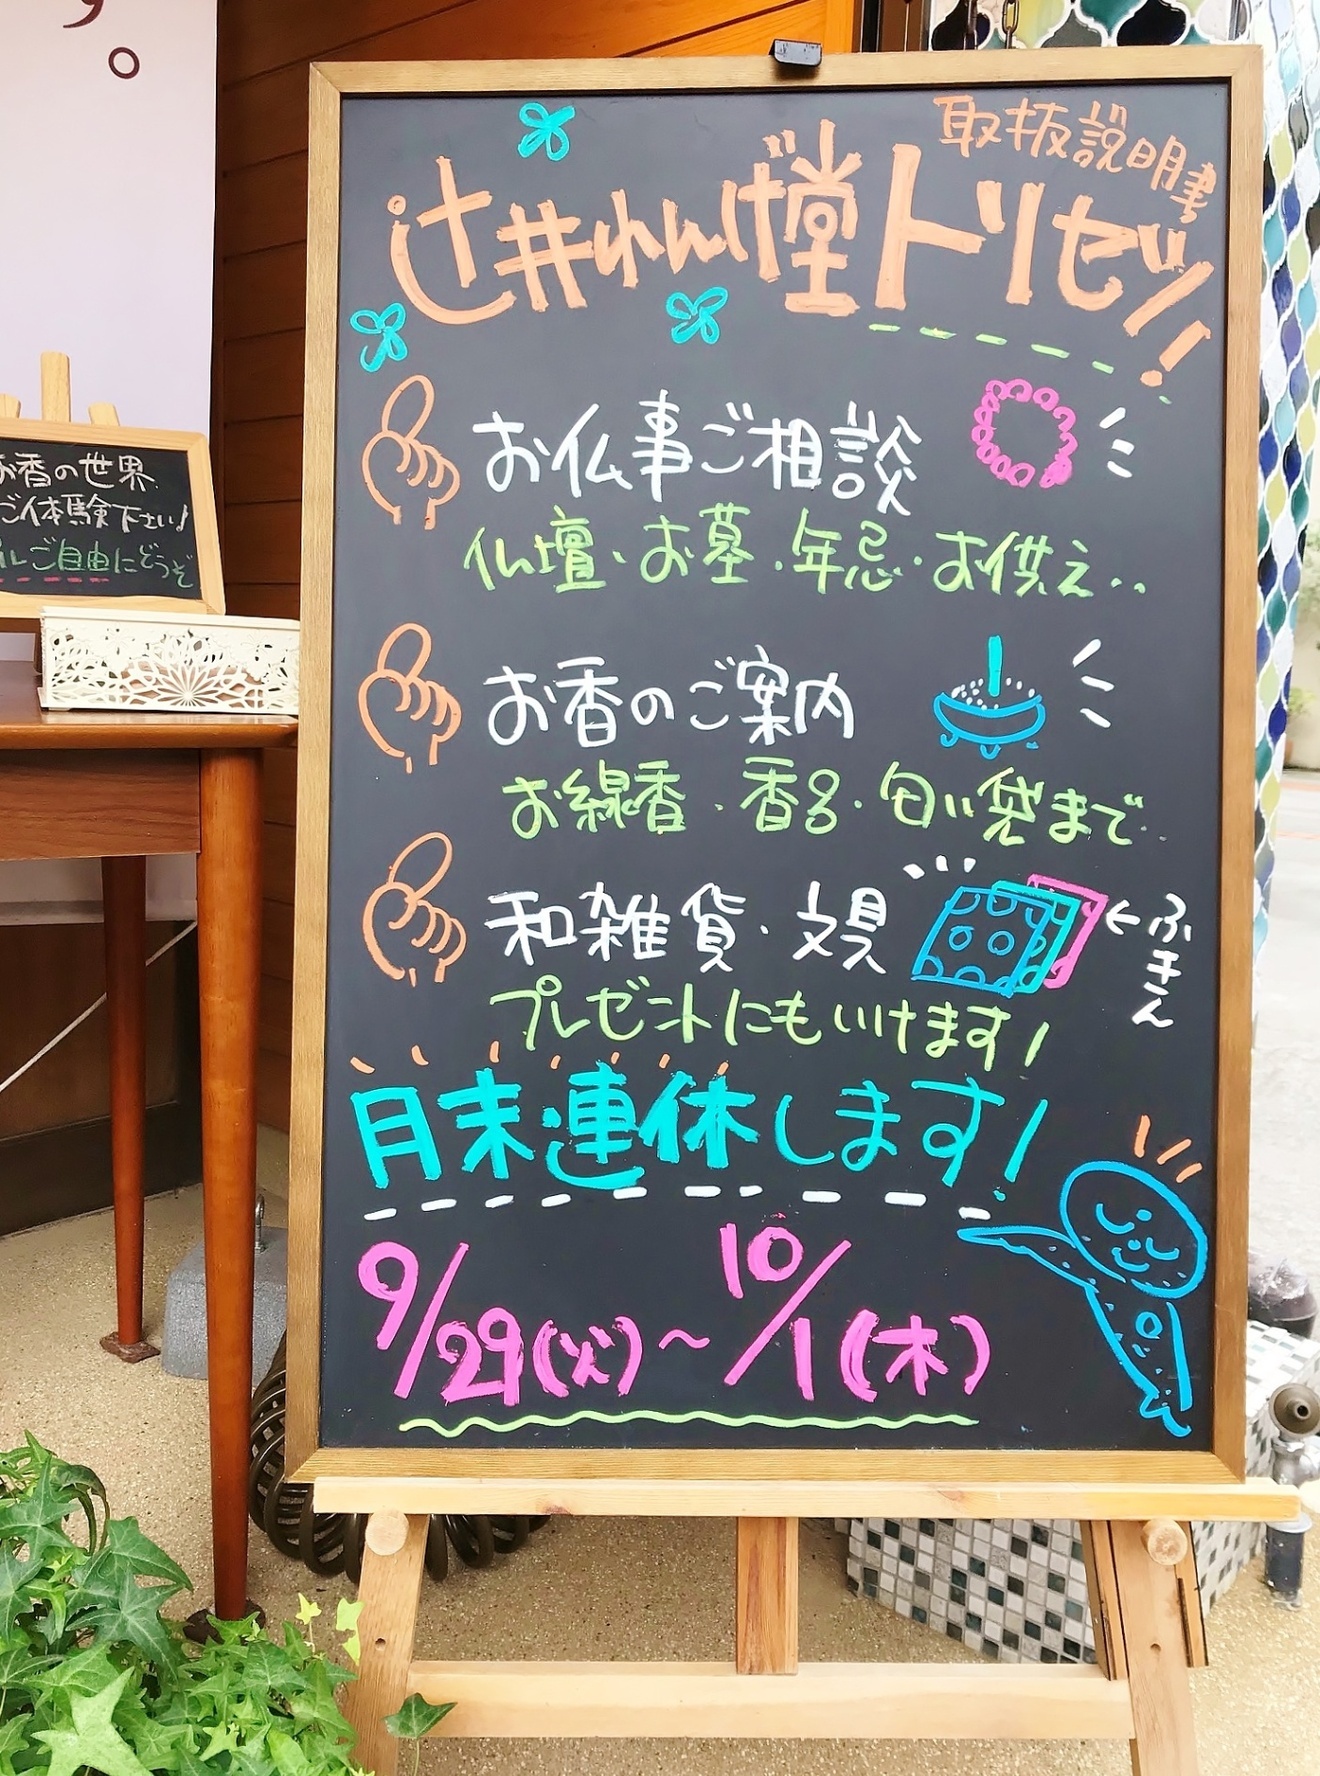 取扱説明書
辻井れんげ堂トリセツ!
お仏事ご相談
仏壇・お墓・年忌・お供え・・
お香のご案内
お線香・香呂・匂い袋まで
和雑貨・文具
←ふきん
プレゼントにもいけます!
月末連休します!
9/29(火)~10/1(木)
お香の世界
ご体験下さい!
ルご自由にどうぞ
。